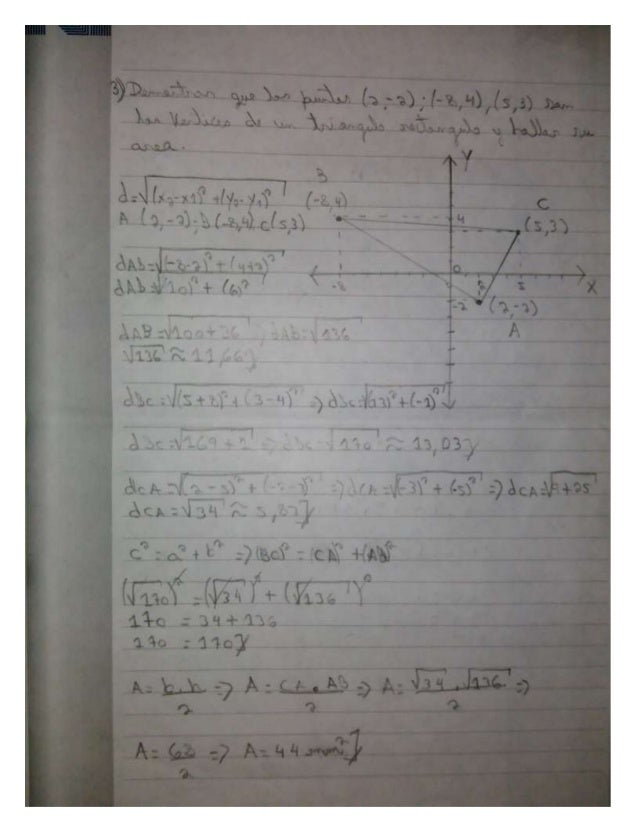 3) Demostrar que los puntos (2,-2); (-8,4), (5,3) son
los vertices de un triangulo rectangulo y hallar su
area.
Y
B
d=√(x2-x1)² + (y2-y1)²
(-8,4)
C
A (2,-2); B(-8,4) C(5,3)
4
(5,3)
dAB=√(-8-2)² + (4+2)²
0
-8
2
5
X
dAB=√(10)² + (6)²
-2
(2,-2)
A
dAB=√100+36 ; dAB=√136
√136 ≈ 11,66
dBC=√(5+8)² + (3-4)² => dBC=√(13)² + (-1)²
dBC=√169+1 => dBC=√170 ≈ 13,03
dCA=√(2-5)² + (-2-3)² => dCA=√(-3)² + (-5)² => dCA=√9+25
dCA=√34 ≈ 5,83
c² = a² + b² => (BC)² = (CA)² + (AB)²
(√170)² = (√34)² + (√136)²
170 = 34+136
170 = 170
A = b.h/2 => A = CA . AB/2 => A = √34 . √136/2 =>
A = 68/2 => A = 44 mm²